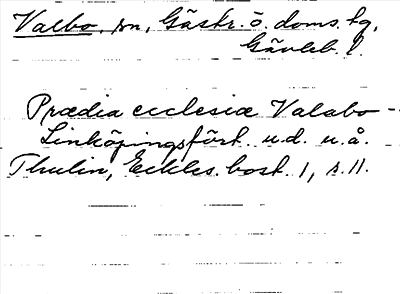 Valbo, sn, Gästr. ö. doms. tg,
Gävleb. l.
Prædia ecclesiæ Valabo -
Linköpingsfört. u.d. u.å.
Thulin, Eckles. bost. 1, s. 11.